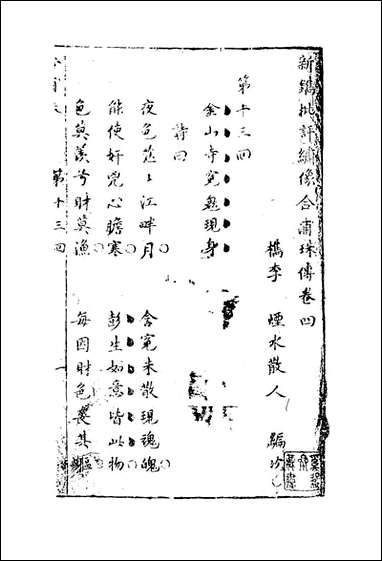 新鐫批評繡像合浦珠傳卷四
檇李　煙水散人　編次
第十三回
金山寺冤魂現身
詩曰
夜色茫々江畔月　含冤未散現魂魄
能使奸兇心膽寒　彭生如意皆此物
色莫羨兮財莫漁　每因財色喪其軀
第十三回　一